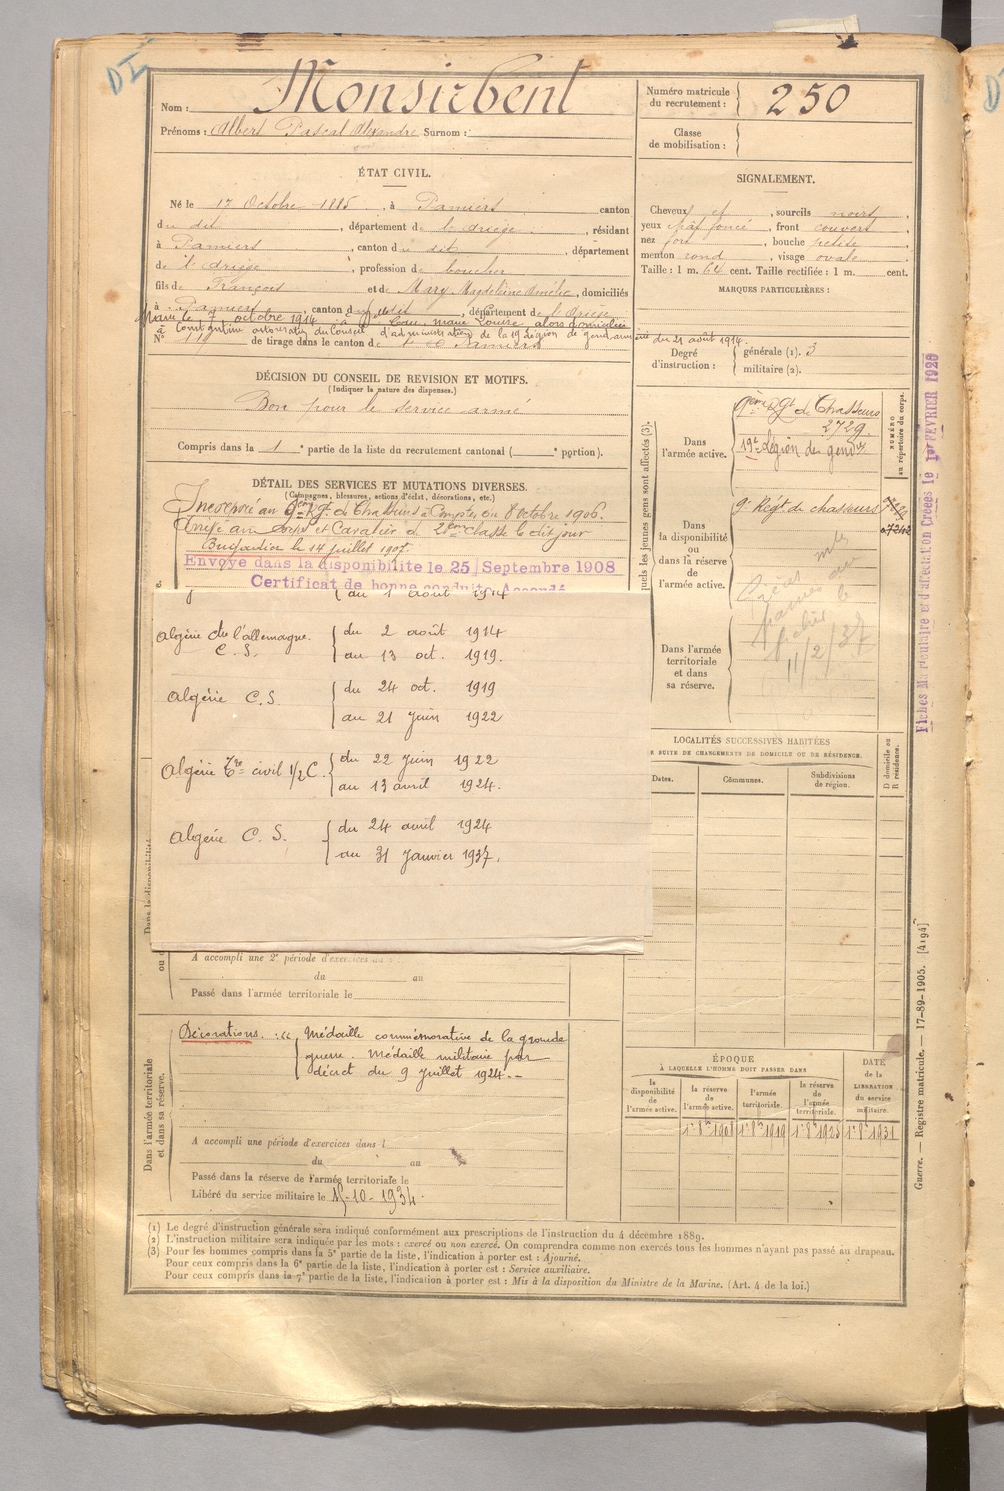 DI
Nom : Monsirbent
Prénoms : Albert Pascal Alexandre Surnom :
Numéro matricule du recrutement : 250
Classe de mobilisation :
ÉTAT CIVIL.
Né le 17 Octobre 1885, à Pamiers canton
du dit, département de l'Ariège, résidant
à Pamiers, canton du dit, département
de l'Ariège, profession de boucher
fils de François et de Mary Magdeleine Amélie, domiciliés
à Pamiers, canton du dit, département de l'Ariège
Marié le 7 octobre 1914 à Marie Louise alors domiciliée
à Constantine autorisation du Conseil d'administration de la 19 légion de gendarmerie du 21 août 1914.
N° 119 de tirage dans le canton de Pamiers
SIGNALEMENT.
Cheveux et, sourcils noirs,
yeux chât foncé, front couvert,
nez fort, bouche petite,
menton rond, visage ovale.
Taille : 1 m. 64 cent. Taille rectifiée : 1 m. cent.
MARQUES PARTICULIÈRES :
Degré d'instruction : générale (1). 3
militaire (2).
DÉCISION DU CONSEIL DE REVISION ET MOTIFS.
(Indiquer la nature des dispenses.)
Bon pour le service armé
Compris dans la 1e partie de la liste du recrutement cantonal ( e portion).
DÉTAIL DES SERVICES ET MUTATIONS DIVERSES.
(Campagnes, blessures, actions d'éclat, décorations, etc.)
Incorporé au 9ème Rgt de Chasseurs à Compter du 8 octobre 1906.
Arrivé au Corps et Cavalier de 2ème classe le dit jour
Brigadier le 14 juillet 1907.
Envoyé dans la disponibilité le 25 Septembre 1908
Certificat de bonne conduite Accordé
au 1 août 1914
Algérie Cu l'allemagne. C. S. du 2 août 1914
au 13 oct. 1919.
Algérie C. S. du 24 oct. 1919
au 21 juin 1922
Algérie Tre civil 1/2 C. du 22 juin 1922
au 13 avril 1924.
Algérie C. S. du 24 avril 1924
au 31 Janvier 1937.
A accompli une 2e période d'exercices
du au
Passé dans l'armée territoriale le
Dans l'armée territoriale et dans sa réserve.
Décorations. : Médaille commémorative de la grande
guerre. Médaille militaire par
décret du 9 juillet 1924.-
A accompli une période d'exercices dans l
du au
Passé dans la réserve de l'armée territoriale le
Libéré du service militaire le 15-10-1934.
quels les jeunes gens sont affectés (3).
NUMÉRO au répertoire du corps.
Dans l'armée active.
9ème Rgt de Chasseurs
2729.
19e Légion de gendie
Dans la disponibilité ou dans la réserve de l'armée active.
9e Régt de chasseurs
Dans l'armée territoriale et dans sa réserve.
11/2/37
LOCALITÉS SUCCESSIVES HABITÉES
E SUITE DE CHANGEMENTS DE DOMICILE OU DE RÉSIDENCE.
Dates.
Communes.
Subdivisions de région.
D domicile ou R résidence.
ÉPOQUE
À LAQUELLE L'HOMME DOIT PASSER DANS
la disponibilité de l'armée active.
la réserve de l'armée active.
l'armée territoriale.
la réserve de l'armée territoriale.
DATE de la LIBÉRATION du service militaire.
1r 8re 1908 1r 8re 1919 1r 8re 1925 1r 8re 1931
(1) Le degré d'instruction générale sera indiqué conformément aux prescriptions de l'instruction du 4 décembre 1889.
(2) L'instruction militaire sera indiquée par les mots : exercé ou non exercé. On comprendra comme non exercés tous les hommes n'ayant pas passé au drapeau.
(3) Pour les hommes compris dans la 5e partie de la liste, l'indication à porter est : Ajourné.
Pour ceux compris dans la 6e partie de la liste, l'indication à porter est : Service auxiliaire.
Pour ceux compris dans la 7e partie de la liste, l'indication à porter est : Mis à la disposition du Ministre de la Marine. (Art. 4 de la loi.)
Fiches Matriculaire et d'affectation Créées le 1er FEVRIER 1920
Guerre. — Registre matricule. — 17-89-1905. [4194]